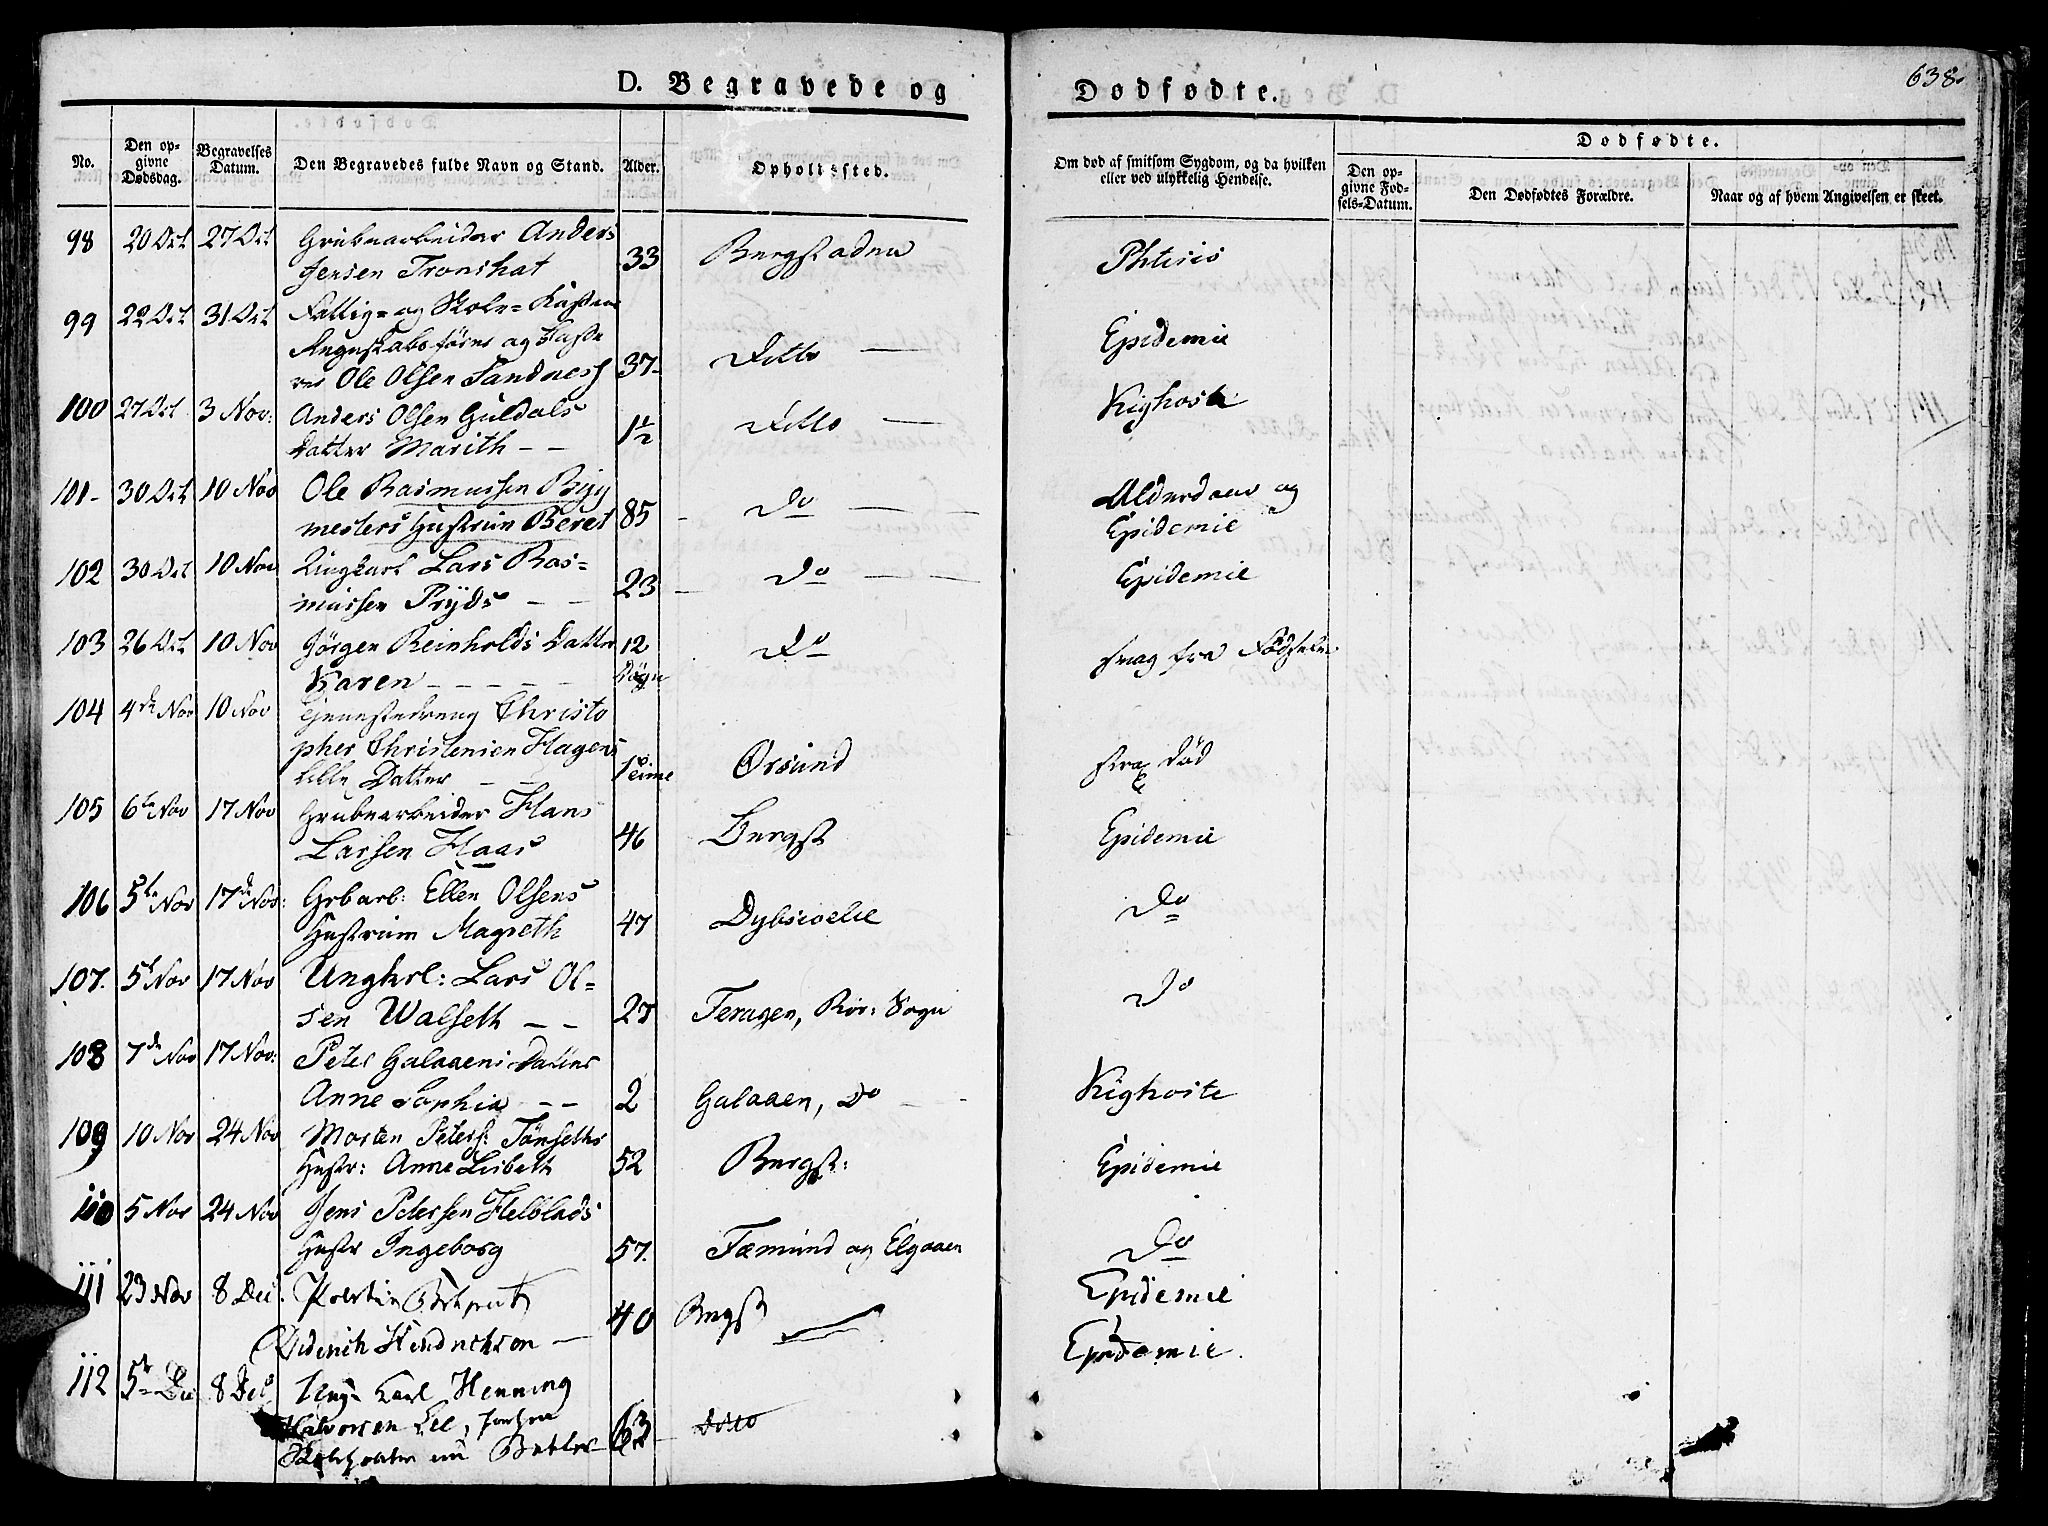 D. Begravede og Dødfødte.
638.
No. | Den opgivne Dødsdag. | Begravelses Datum. | Den Begravedes fulde Navn og Stand. | Alder. | Opholdssted. | Om død af smitsom Sygdom, og da hvilken eller ved ulykkelig Hendelse. | Dødfødte. | Den opgivne Fødsels-Datum. | Den Dødfødtes Forældre. | Naar og af hvem Angivelsen er skeet.
98 20 Oct 27 Oct Grubearbeider Anders
Jensen Tronshat 33 Bergstaden Phtisis
99 22 Oct 31 Oct Fattig- og Skole-Kassens
Regnskabsfører og Kasse
rer Ole Olsen Sandness 37 Ditto — Epidemie
100 27 Oct 3 Nov: Anders Olsen Guldals
Datter Marith — — 1½ Ditto — Kighoste
101 30 Oct 10 Nov Ole Rasmussen Byg
mesters Hustrue Beret 85 Do — — Alderdom og
Epidemie
102 30 Oct 10 Nov Ungkarl Lars Ras=
mussen Pryds — — 23 — Do — — Epidemie
103 26 Oct 10 Nov Jørgen Reinholds Datter 12
Karen — — — — — Døgn Do svag fra Fødselen
104 4de Nov 10 Nov Tjenestedreng Christo
pher Christensen Hagens
lille Datter — — 1 Time Orsund strax Død
105 6te Nov 17 Nov Grubearbeider Hans
Larsen Haas 46 Bergst Epidemie
106 5te Nov 17de Nov: Grbarb: Ellen Olsens
Hustrum Magreth 47 Dybsioelie Do
107. 5t Nov 17 Nov Ungkrl: Lars Ol=
sen Walseth — — 27 Feragen, Rør: Sogn Do
108 7de Nov 17 Nov: Peter Galaaens Datter
Anne Sophia — — 2 Galaaen, Do — — Kighoste
109 10 Nov 24 Nov Morten Peters: Tønseths
Hustr: Anne Lisbeth 52 Bergst: Epidemie
110 5 Nov 24 Nov Jens Petersen Helblads
Hustr Ingeborg 57. Fæmund og Elgaaen Do
111 23 Nov 8 Dec.
Diderich Hendrichson — 40 Bergst Epidemie
Epidemie.
112 5te Dec 8 Dec Ung Karl Henning
Halvorsen Lie, 63 — Ditto